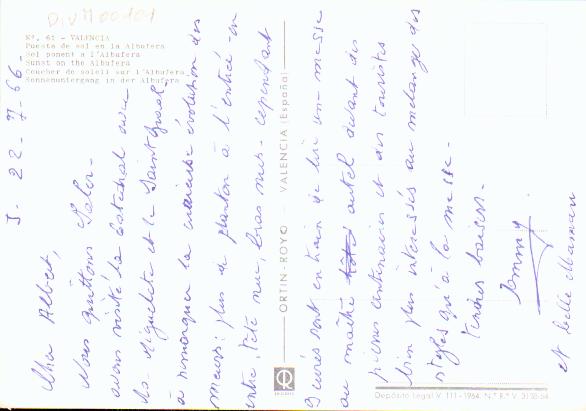 DIVM00101
Nº. 61 - VALENCIA
Puesta de sol en la Albufera
Sol ponent a l'Albufera
Sunst on the Albufera
Coucher de soleil sur l'Albufera
Sonnenuntergang in der Albufera
J. 22-7-66-
Cher Albert,
Nous quittons Saler-
avons visité la Catedral avec
le Miguelete et le Saint Graal,
à remarquer la curieuse évolution des
mœurs: plus de planton à l'entrée-on
entre tête nue, bras nus- cependant
9 curés sont en train de lire une messe
au maître autel devant des
pieuses et des touristes
bien plus intéressés au mélange des
styles qu'à la messe-
Tendres baisers-
et belle Maman
ORTIN-ROYO - VALENCIA (España)
Depósito Legal V. 111-1964. N.º R.º V. 3138-64